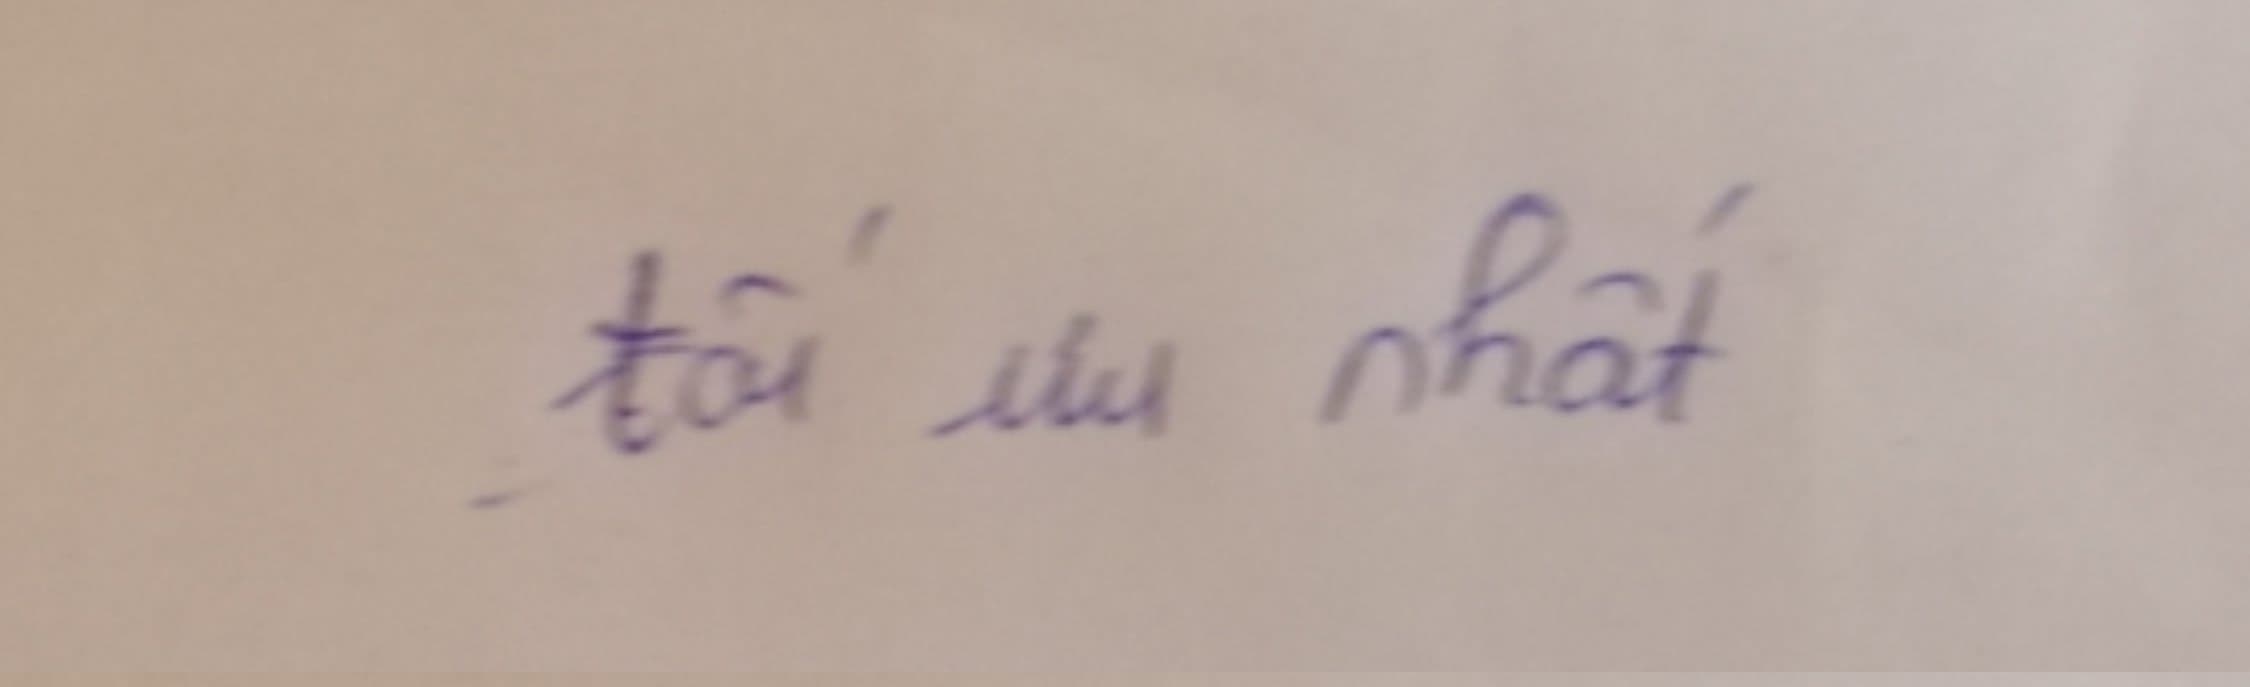 tối ưu nhất